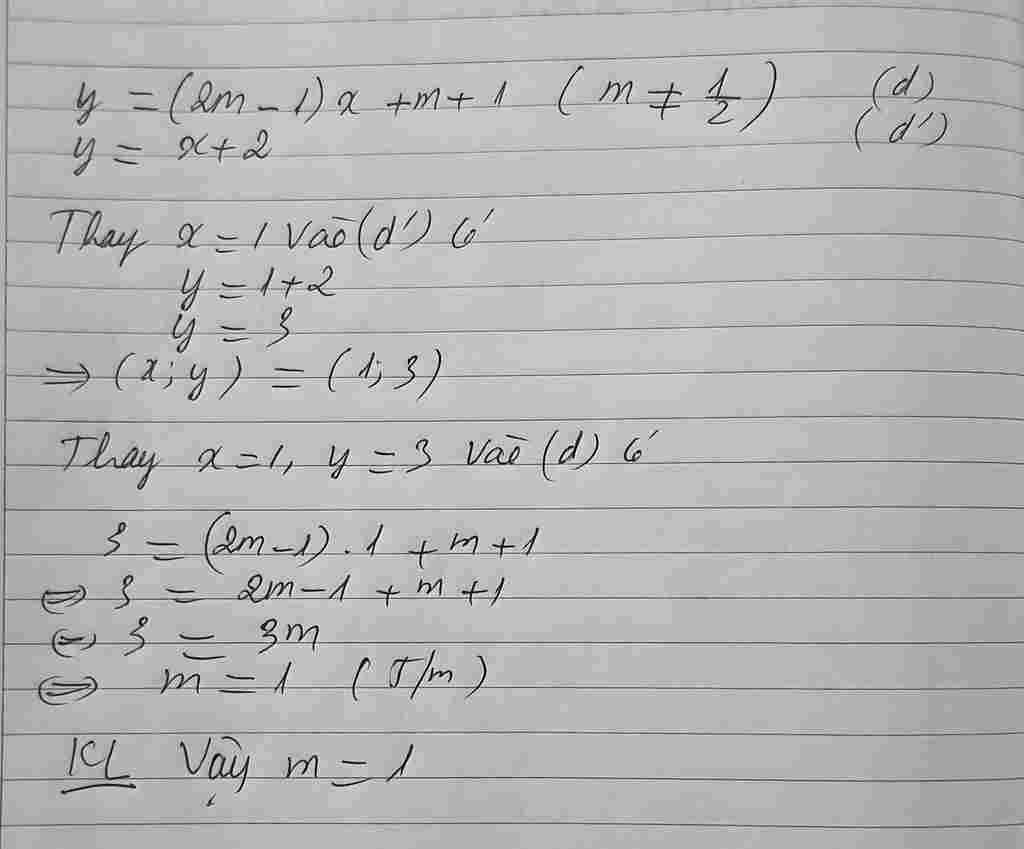 y = (2m - 1) x + m + 1 ( m ≠ 1/2 ) (d)
y = x + 2 (d')
Thay x = 1 vào (d') có
y = 1 + 2
y = 3
⇒ (x; y) = (1; 3)
Thay x = 1, y = 3 vào (d) có
3 = (2m - 1) . 1 + m + 1
⇔ 3 = 2m - 1 + m + 1
⇔ 3 = 3m
⇔ m = 1 (T/m)
KL Vậy m = 1